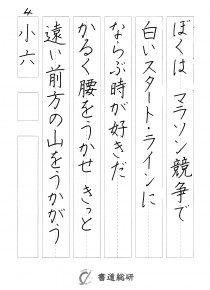 4
ぼくは マラソン競争で
白いスタート・ラインに
ならぶ時が好きだ
かるく腰をうかせ きっと
遠い前方の山をうかがう
小六
書道総研